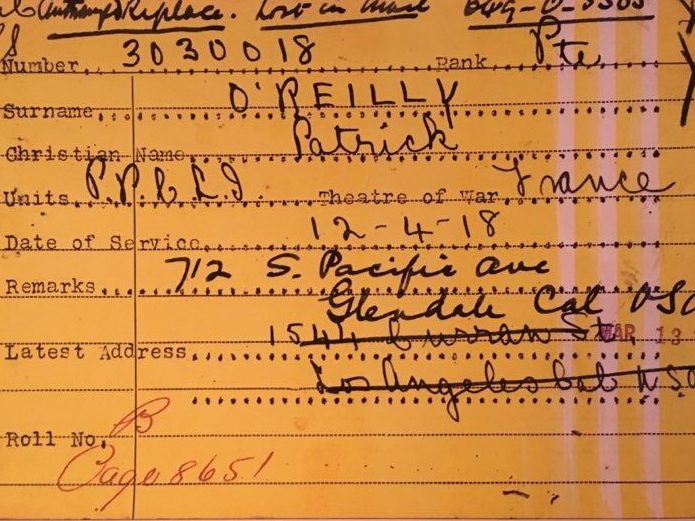 Authorized Replace. Lost in mail
Number 3030018 Rank Pte
Surname O'REILLY
Christian Name Patrick
Units P.P.C.L.I Theatre of War France
Date of Service 12-4-18
Remarks 712 S. Pacific Ave
Glendale Cal USA
Latest Address 1544 Curran St. MAR 13
Los Angeles Cal USA
Roll No. B
Page 8651